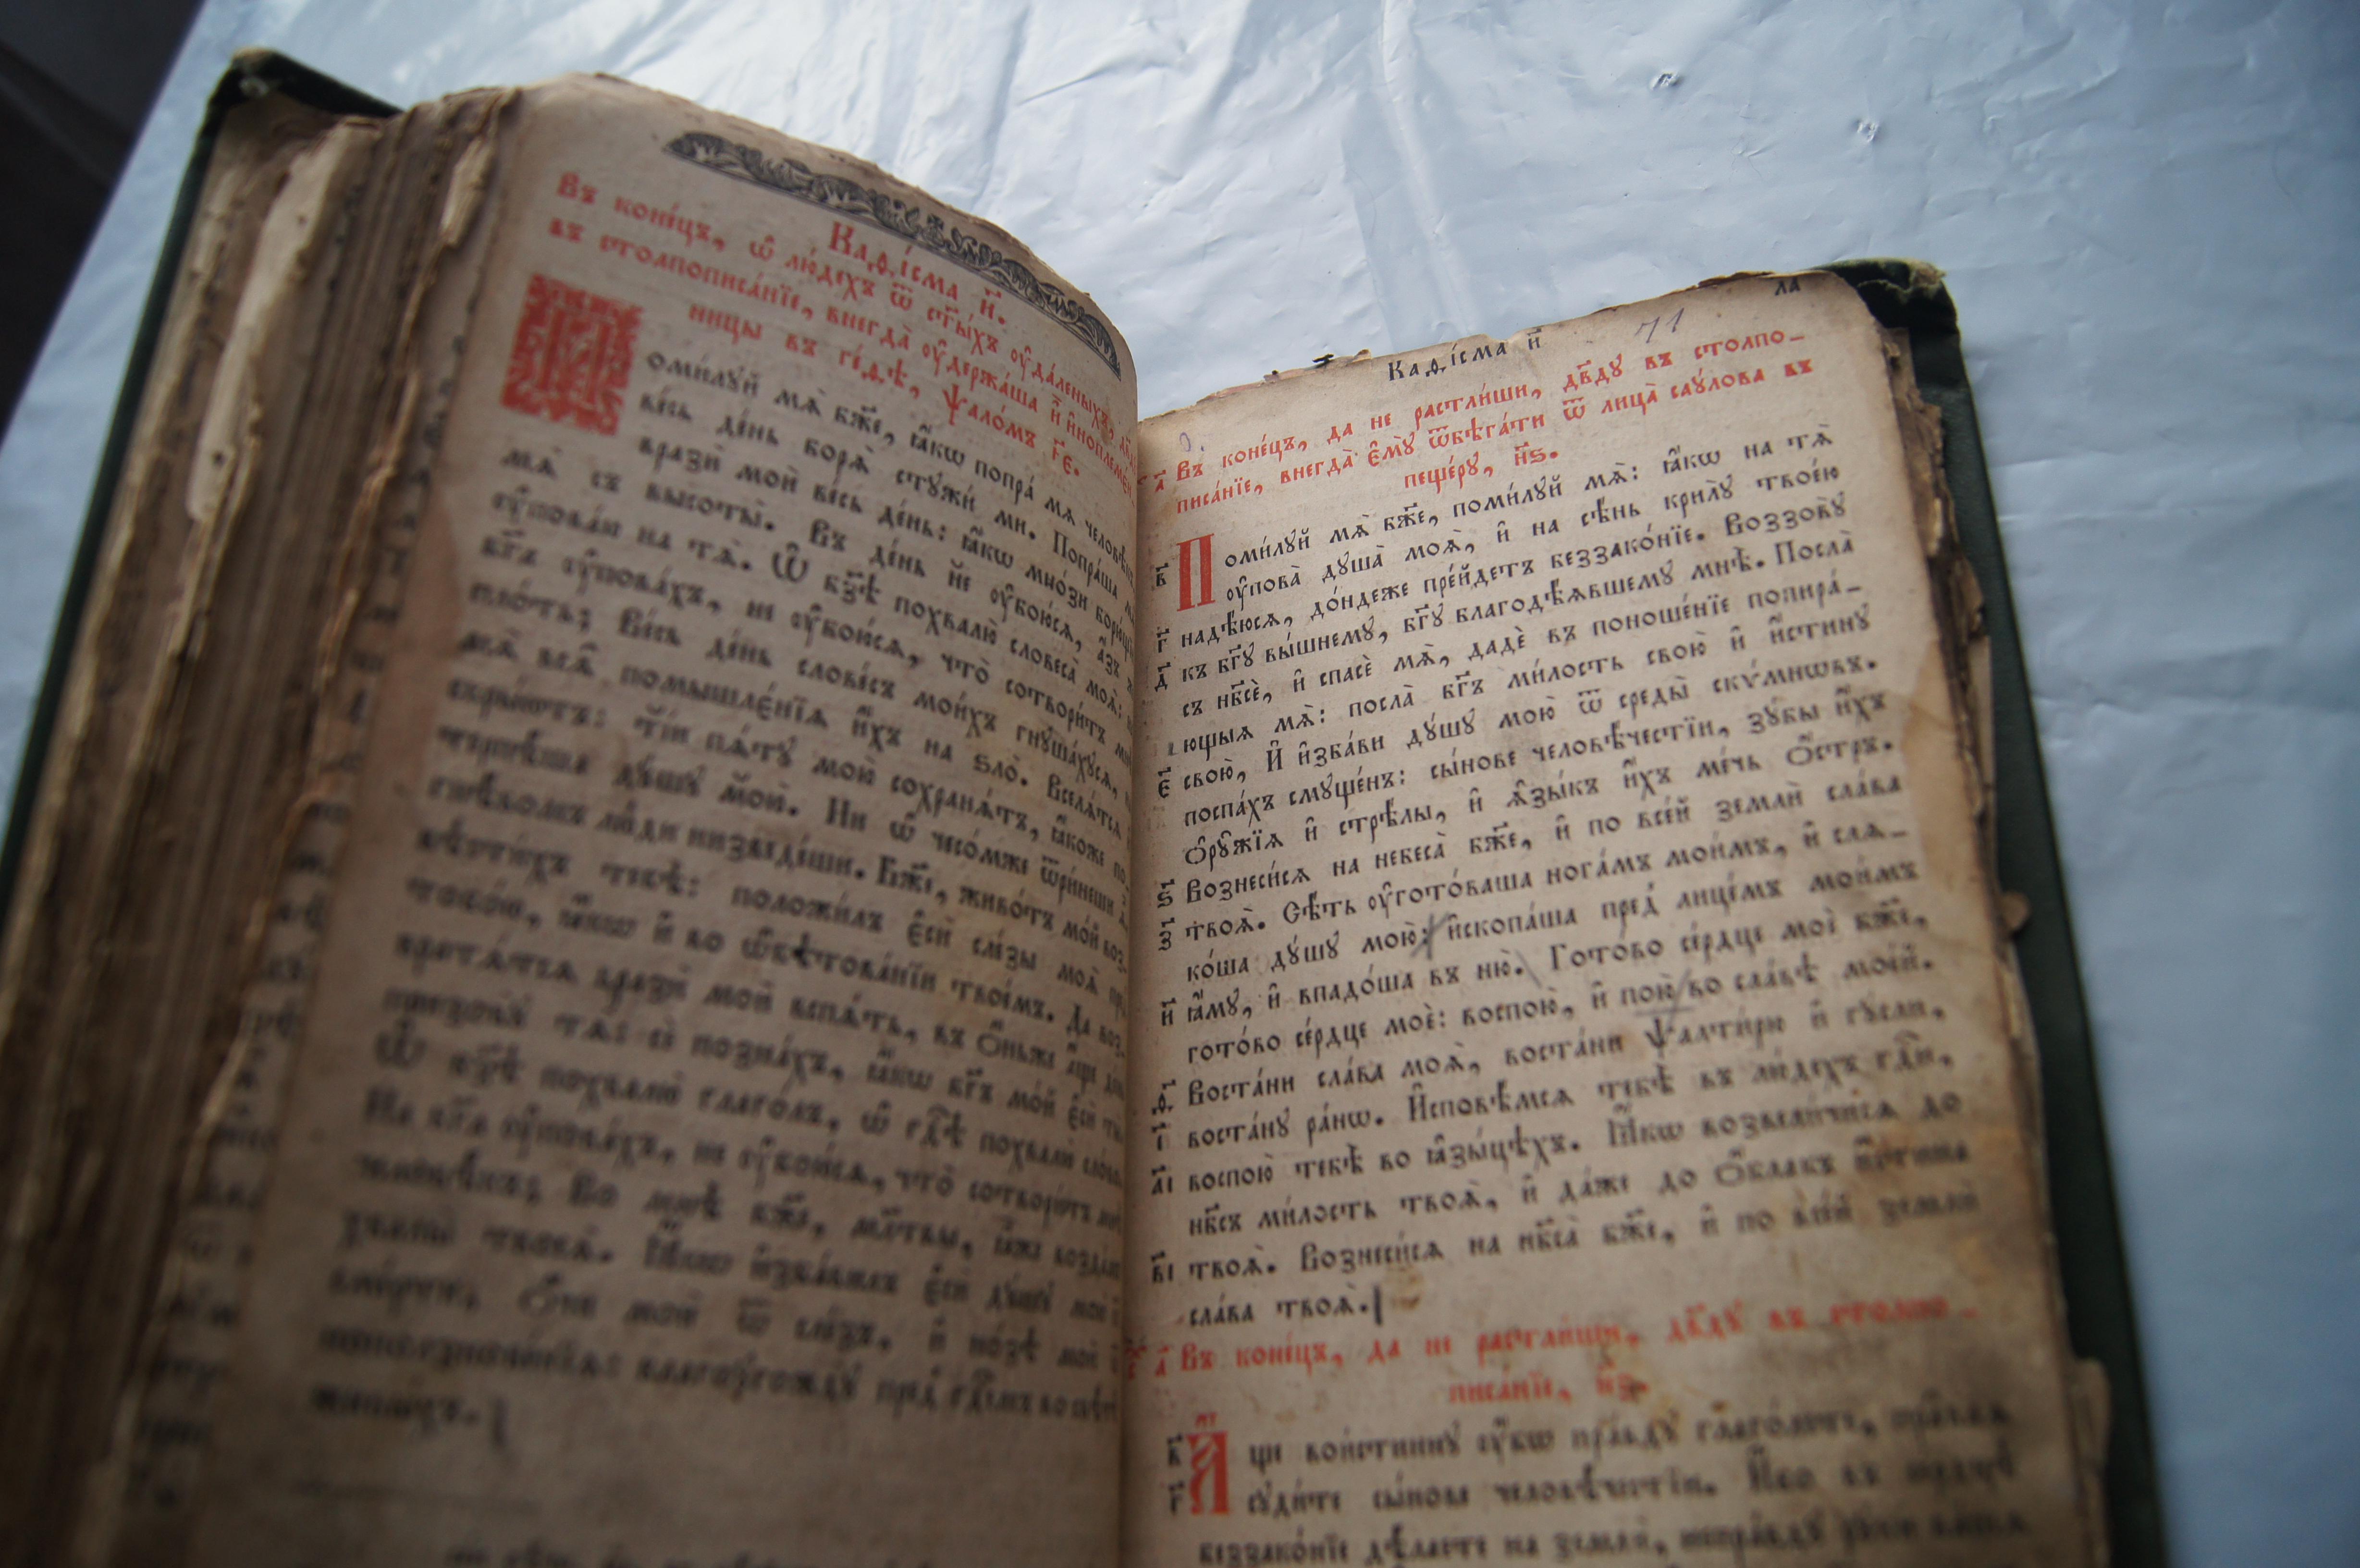 Каѳі́сма и҃.
Въ коне́цъ, ѡ҆ лю́дехъ ѿ ст҃ы́хъ ᲂу҆да́леныхъ,
въ столпописа́нїе, внегда̀ ᲂу҆держа́ша и҆̀ и҆ноплеме́н
ницы въ ге́ѳѣ, Ѱало́мъ н҃є.
Поми́лꙋй мѧ̀ бж҃е, ꙗ҆́кѡ попра́ мѧ человѣ́къ
ве́сь де́нь борѧ̀ стꙋжи́ ми. Попра́ша мѧ̀
вразѝ моѝ ве́сь де́нь: ꙗ҆́кѡ мно́зи борю́щїи
мѧ̀ съ высоты̀. Въ де́нь не ᲂу҆бою́сѧ, а҆́зъ
ᲂу҆пова́ю на тѧ̀. Ѡ҆ бз҃ѣ похвалю̀ словеса̀ моѧ̑:
бг҃ъ ᲂу҆пова́хъ, не ᲂу҆бою́сѧ, что̀ сотвори́тъ мнѣ̀
пло́ть; Ве́сь де́нь слове́съ мои́хъ гнꙋша́хꙋсѧ,
мѧ̀ всѧ̑ помышле́нїѧ и҆́хъ на ѕло̀. Вселѧ́тсѧ
скры́ютъ: ті́и пѧ́тꙋ мою̀ сохранѧ́тъ, ꙗ҆́коже по-
терпѣ́ша дꙋ́шꙋ мою̀. Ни ѡ҆ чесо́мже ѿри́неши
гнѣ́вомъ лю́ди низведе́ши. Бж҃е, живо́тъ мо́й воз-
вѣсти́хъ тебѣ̀: положи́лъ є҆сѝ сле́зы моѧ̑ пре
тобо́ю, ꙗ҆́кѡ и҆ во ѡ҆бѣтова́нїи твое́мъ. Да воз-
вратѧ́тсѧ вразѝ моѝ вспѧ́ть, въ ѻ҆́ньже а҆́ще де́нь
призовꙋ̀ тѧ̀: сѐ позна́хъ, ꙗ҆́кѡ бг҃ъ мо́й є҆сѝ ты̀
Ѡ҆ бз҃ѣ похвалю̀ глаго́лъ, ѡ҆ гд҃ѣ похвалю̀ сло́во.
На бг҃а ᲂу҆пова́хъ, не ᲂу҆бою́сѧ, что̀ сотвори́тъ мнѣ̀
человѣ́къ; Во мнѣ̀ бж҃е, мл҃твы, ꙗ҆̀же возда́мъ
хвалы̀ твоеѧ̀. Ꙗ҆́кѡ и҆зба́вилъ є҆сѝ дꙋ́шꙋ мою̀
сме́рти, ѻ҆́чи моѝ ѿ сле́зъ. и҆ но́зѣ моѝ
поползнове́нїѧ: благоꙋгождꙋ̀ пред̾ гд҃емъ во свѣ́тѣ
живы́хъ.
Каѳі́сма и҃
71
ла
Въ коне́цъ, да не растли́ши, дв҃дꙋ въ столпо-
писа́нїе, внегда̀ є҆мꙋ̀ ѿбѣга́ти ѿ лица̀ саꙋ́лова въ
пеще́рꙋ, н҃ѕ.
Поми́лꙋй мѧ̀ бж҃е, поми́лꙋй мѧ̀: ꙗ҆́кѡ на тѧ̀
ᲂу҆пова̀ дꙋша̀ моѧ̀, и҆ на сѣ́нь крилꙋ̀ твоє́ю
надѣ́юсѧ, до́ндеже пре́йдетъ беззако́нїе. Воззовꙋ̀
къ бг҃ꙋ вы́шнемꙋ, бг҃ꙋ благодѣ́ѧвшемꙋ мнѣ̀. Посла̀
съ нб҃сѐ, и҆ спасѐ мѧ̀, дадѐ въ поноше́нїе попира́-
ющыѧ мѧ̀: посла̀ бг҃ъ ми́лость свою̀ и҆ и҆́стинꙋ
свою̀, И҆ и҆зба́ви дꙋ́шꙋ мою̀ ѿ среды̀ скѵ́мнѡвъ.
поспа́хъ смꙋще́нъ: сы́нове человѣ́честїи, зꙋ́бы и҆́хъ
ѻ҆рꙋ̑жїѧ и҆ стрѣ́лы, и҆ ѧ҆зы́къ и҆́хъ ме́чь ѻ҆́стръ.
Вознеси́сѧ на небеса̀ бж҃е, и҆ по все́й землѝ сла́ва
твоѧ̀. Сѣ́ть ᲂу҆гото́ваша нога́мъ мои̑мъ, и҆ слѧ-
ко́ша дꙋ́шꙋ мою̀: и҆скопа́ша пред̾ лице́мъ мои́мъ
ꙗ҆́мꙋ, и҆ впадо́ша въ ню̀. Гото́во се́рдце моѐ бж҃е,
гото́во се́рдце моѐ: воспою̀, и҆ пою̀ во сла́вѣ мое́й.
Воста́ни сла́ва моѧ̀, воста́ни ѱалти́рю и҆ гꙋ́сли,
воста́нꙋ ра́нѡ. И҆сповѣ́мсѧ тебѣ̀ въ лю́дехъ гд҃и,
воспою̀ тебѣ̀ во ꙗ҆зы́цѣхъ. Ꙗ҆́кѡ возвели́чисѧ до
нб҃съ ми́лость твоѧ̀, и҆ да́же до ѻ҆́блакъ и҆́стина
твоѧ̀. Вознеси́сѧ на нб҃са̀ бж҃е, и҆ по все́й землѝ
сла́ва твоѧ̀.
Въ коне́цъ, да не растли́ши, дв҃дꙋ въ столпо-
писа́нїе, н҃з.
Аще вои́стиннꙋ ᲂу҆́бѡ пра́вдꙋ глаго́лете, пра̑ваѧ
сꙋди́те сы́нове человѣ́честїи. И҆́бо въ се́рдцѣ
беззако́нїе дѣ́лаете на землѝ, непра́вдꙋ рꙋ́ки ва́шѧ